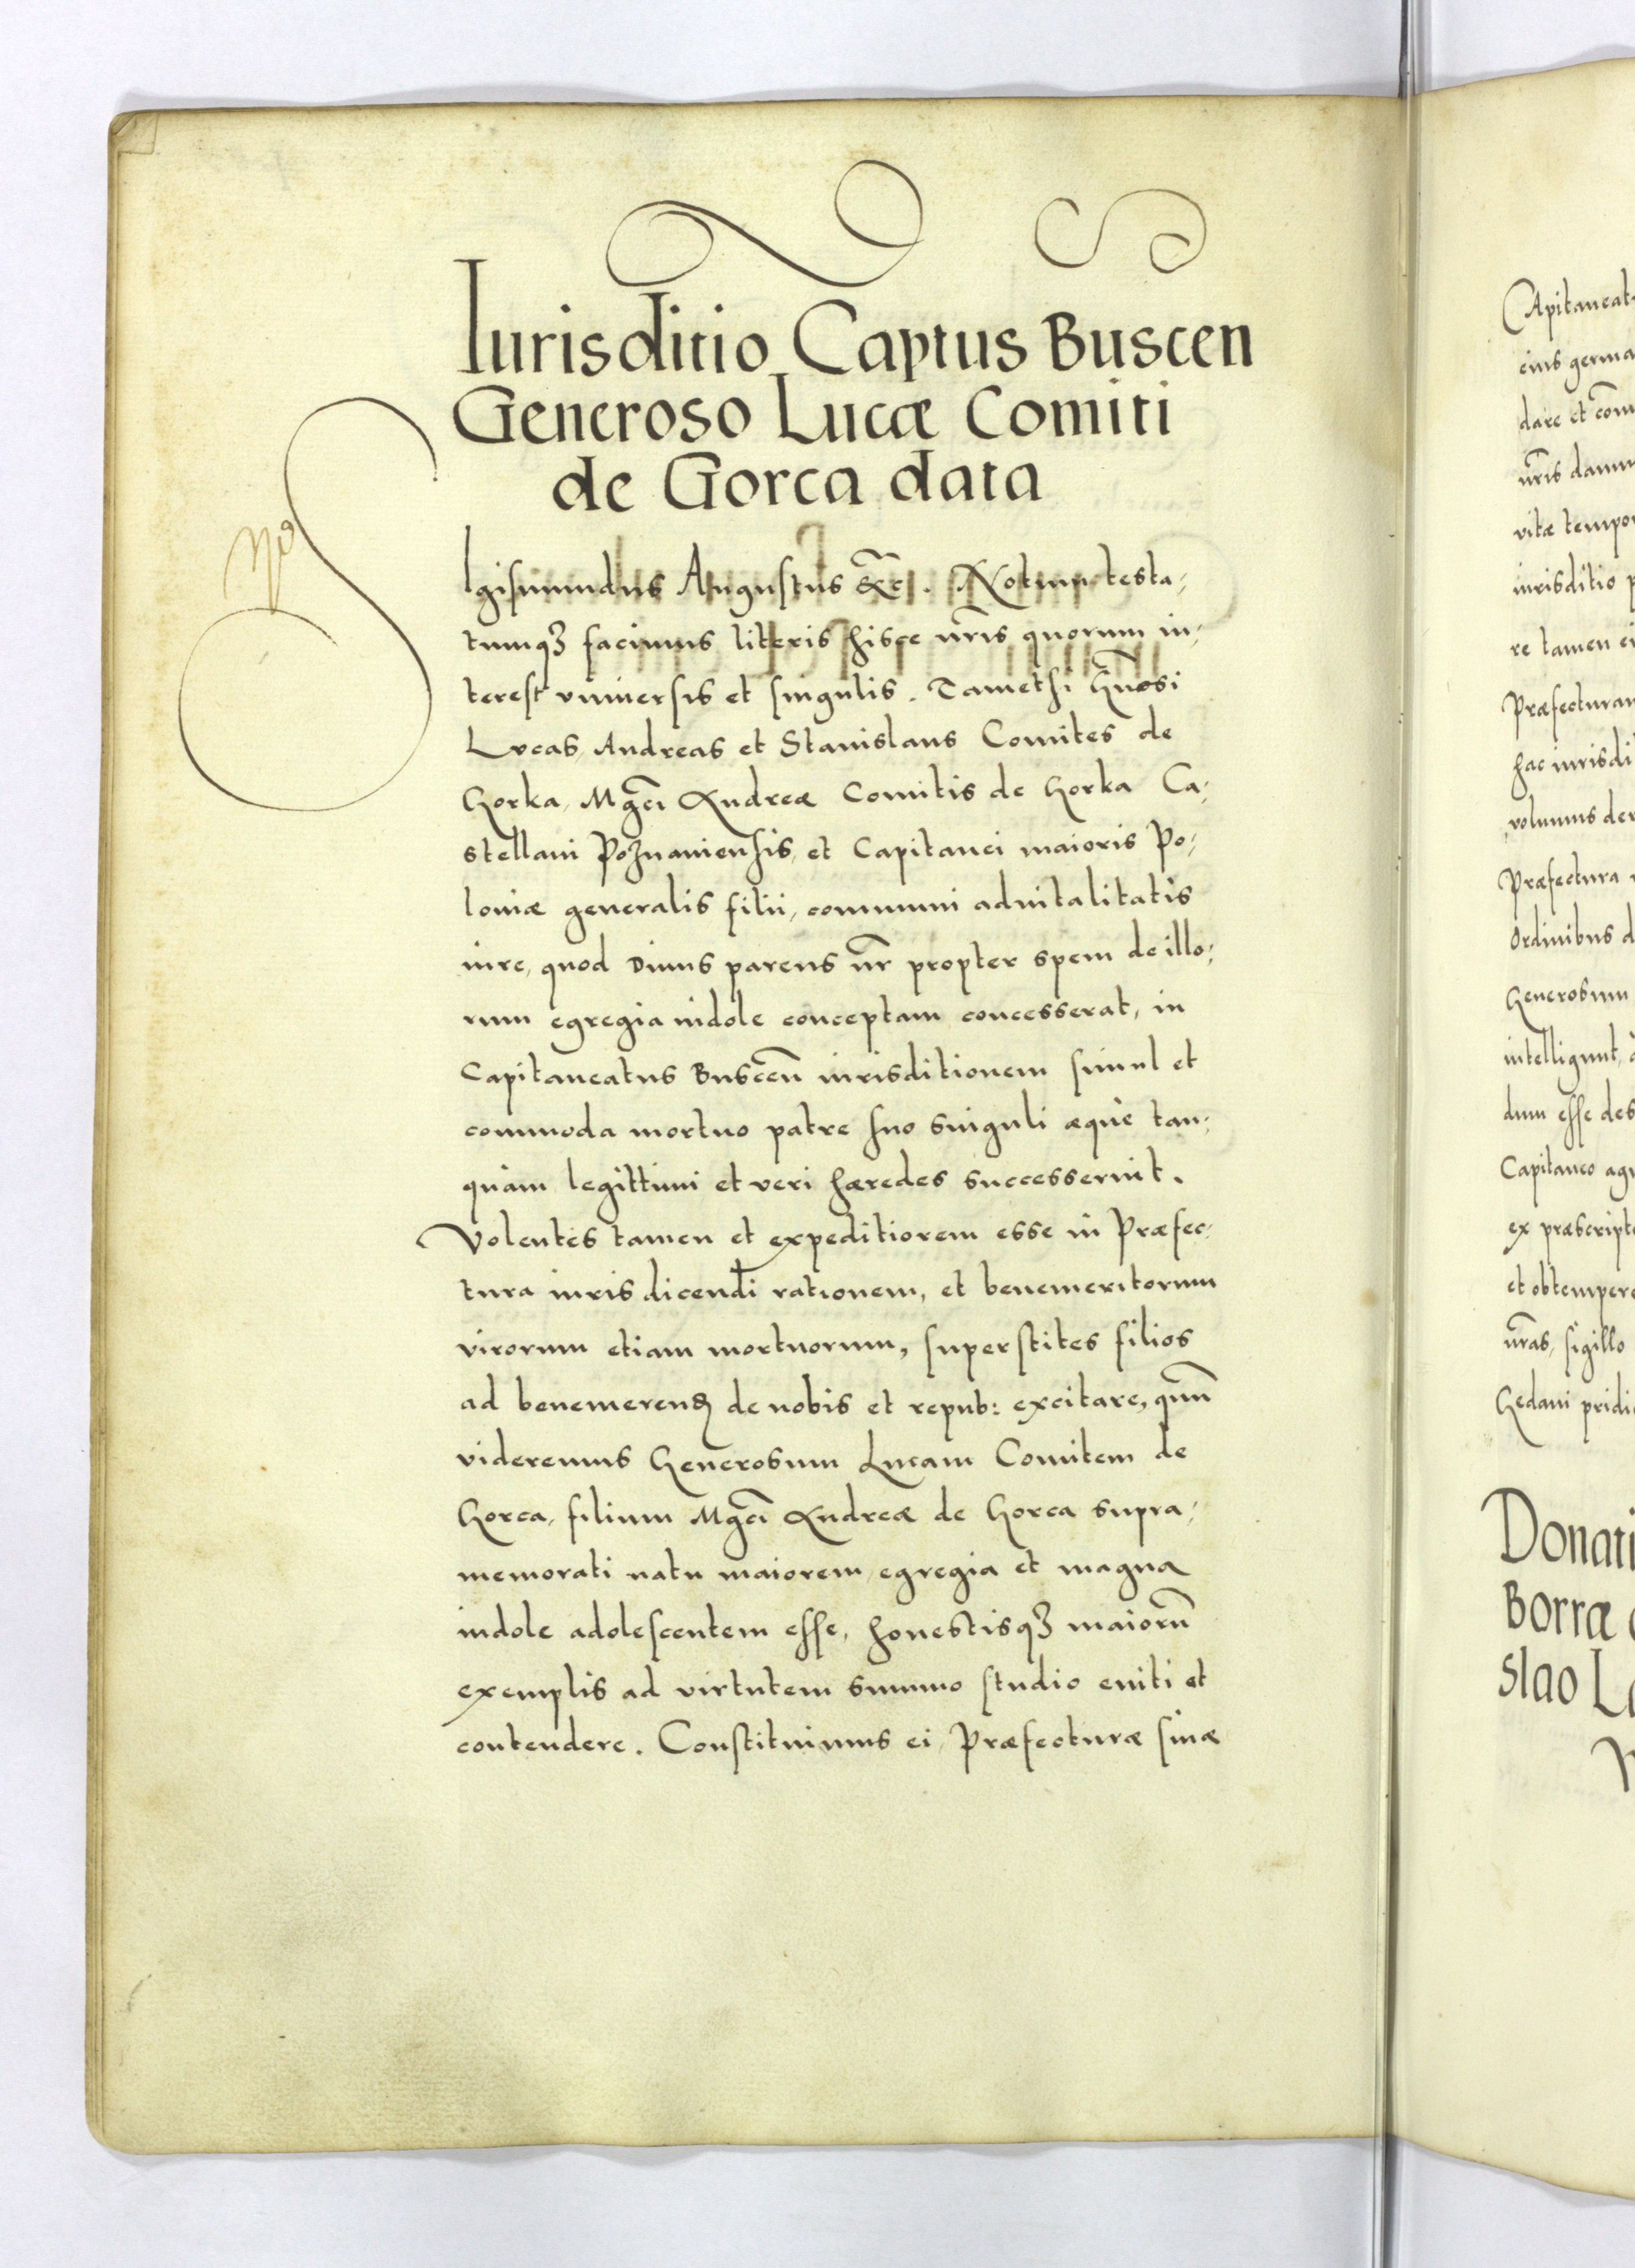 Iurisditio Captus Buscen
Generoso Lucæ Comiti
de Gorca data
SIgismundus Augustus &c̃. Notum testa,
tumqȝ facimus literis hisce nr̃is quorum in,
terest vniuersis et singulis. Tametsi Gñosi
Lvcas, Andreas et Stanislaus Comites de
Gorka, Mgc̃i Andreæ Comitis de Gorka Ca,
stellani Poznaniensis, et Capitanei maioris Po,
loniæ generalis filii, communi aduitalitatis
iure, quod Diuus parens nr̃ propter spem de illo,
rum egregia indole conceptam concesserat, in
Capitaneatus Buscen̄ iurisditionem simul et
commoda mortuo patre suo singuli æquè tan,
quàm legittimi et veri hæredes successerint.
Volentes tamen et expeditiorem esse in Præfec,
tura iuris dicendi rationem, et benemeritorum
virorum etiam mortuorum, superstites filios
ad benemerend de nobis et repub: excitare, quū
videremus Generosum Lucam Comitem de
Gorca, filium Mgc̃i Andreæ de Gorca supra,
memorati natu maiorem, egregia et magna
indole adolescentem esse, honestisqȝ maiorū
exemplis ad virtutem summo studio eniti et
contendere. Constituimus ei, Præfecturæ siuæ
Capitaneat
eius germa
dare et com̄
nr̃is damu
vitæ tempor
iurisditio p
re tamen ei
Præfecturam
hac iurisdi
volumus de
Præfectura
Ordinibus d
Generosum
intelligunt,
dum esse des
Capitaneo ag
ex præscript
et obtempere
nr̃as, sigillo
Gedani pridi
Donati
Borræ
slao L